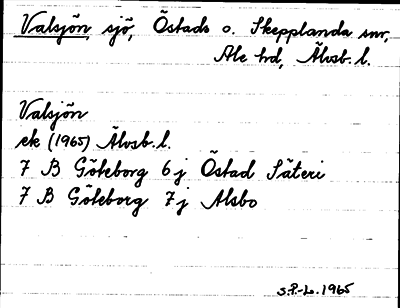 Valsjön, sjö, Östads o. Skepplanda snr,
Ale hd, Älvsb. l.
Valsjön
ek (1965) Älvsb. l.
7 B Göteborg 6 j Östad Säteri
7 B Göteborg 7 j Alsbo
S.P.-L. 1965